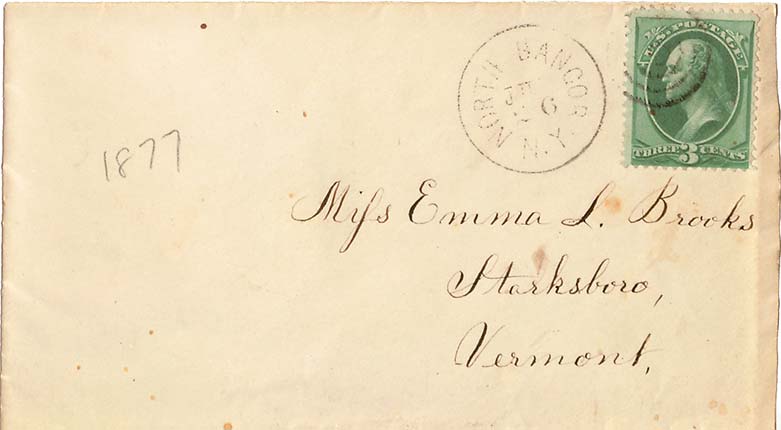 NORTH BANGOR
6
N.Y.
U.S. POSTAGE
THREE 3 CENTS
1877
Miſs Emma L. Brooks
Starksboro,
Vermont,